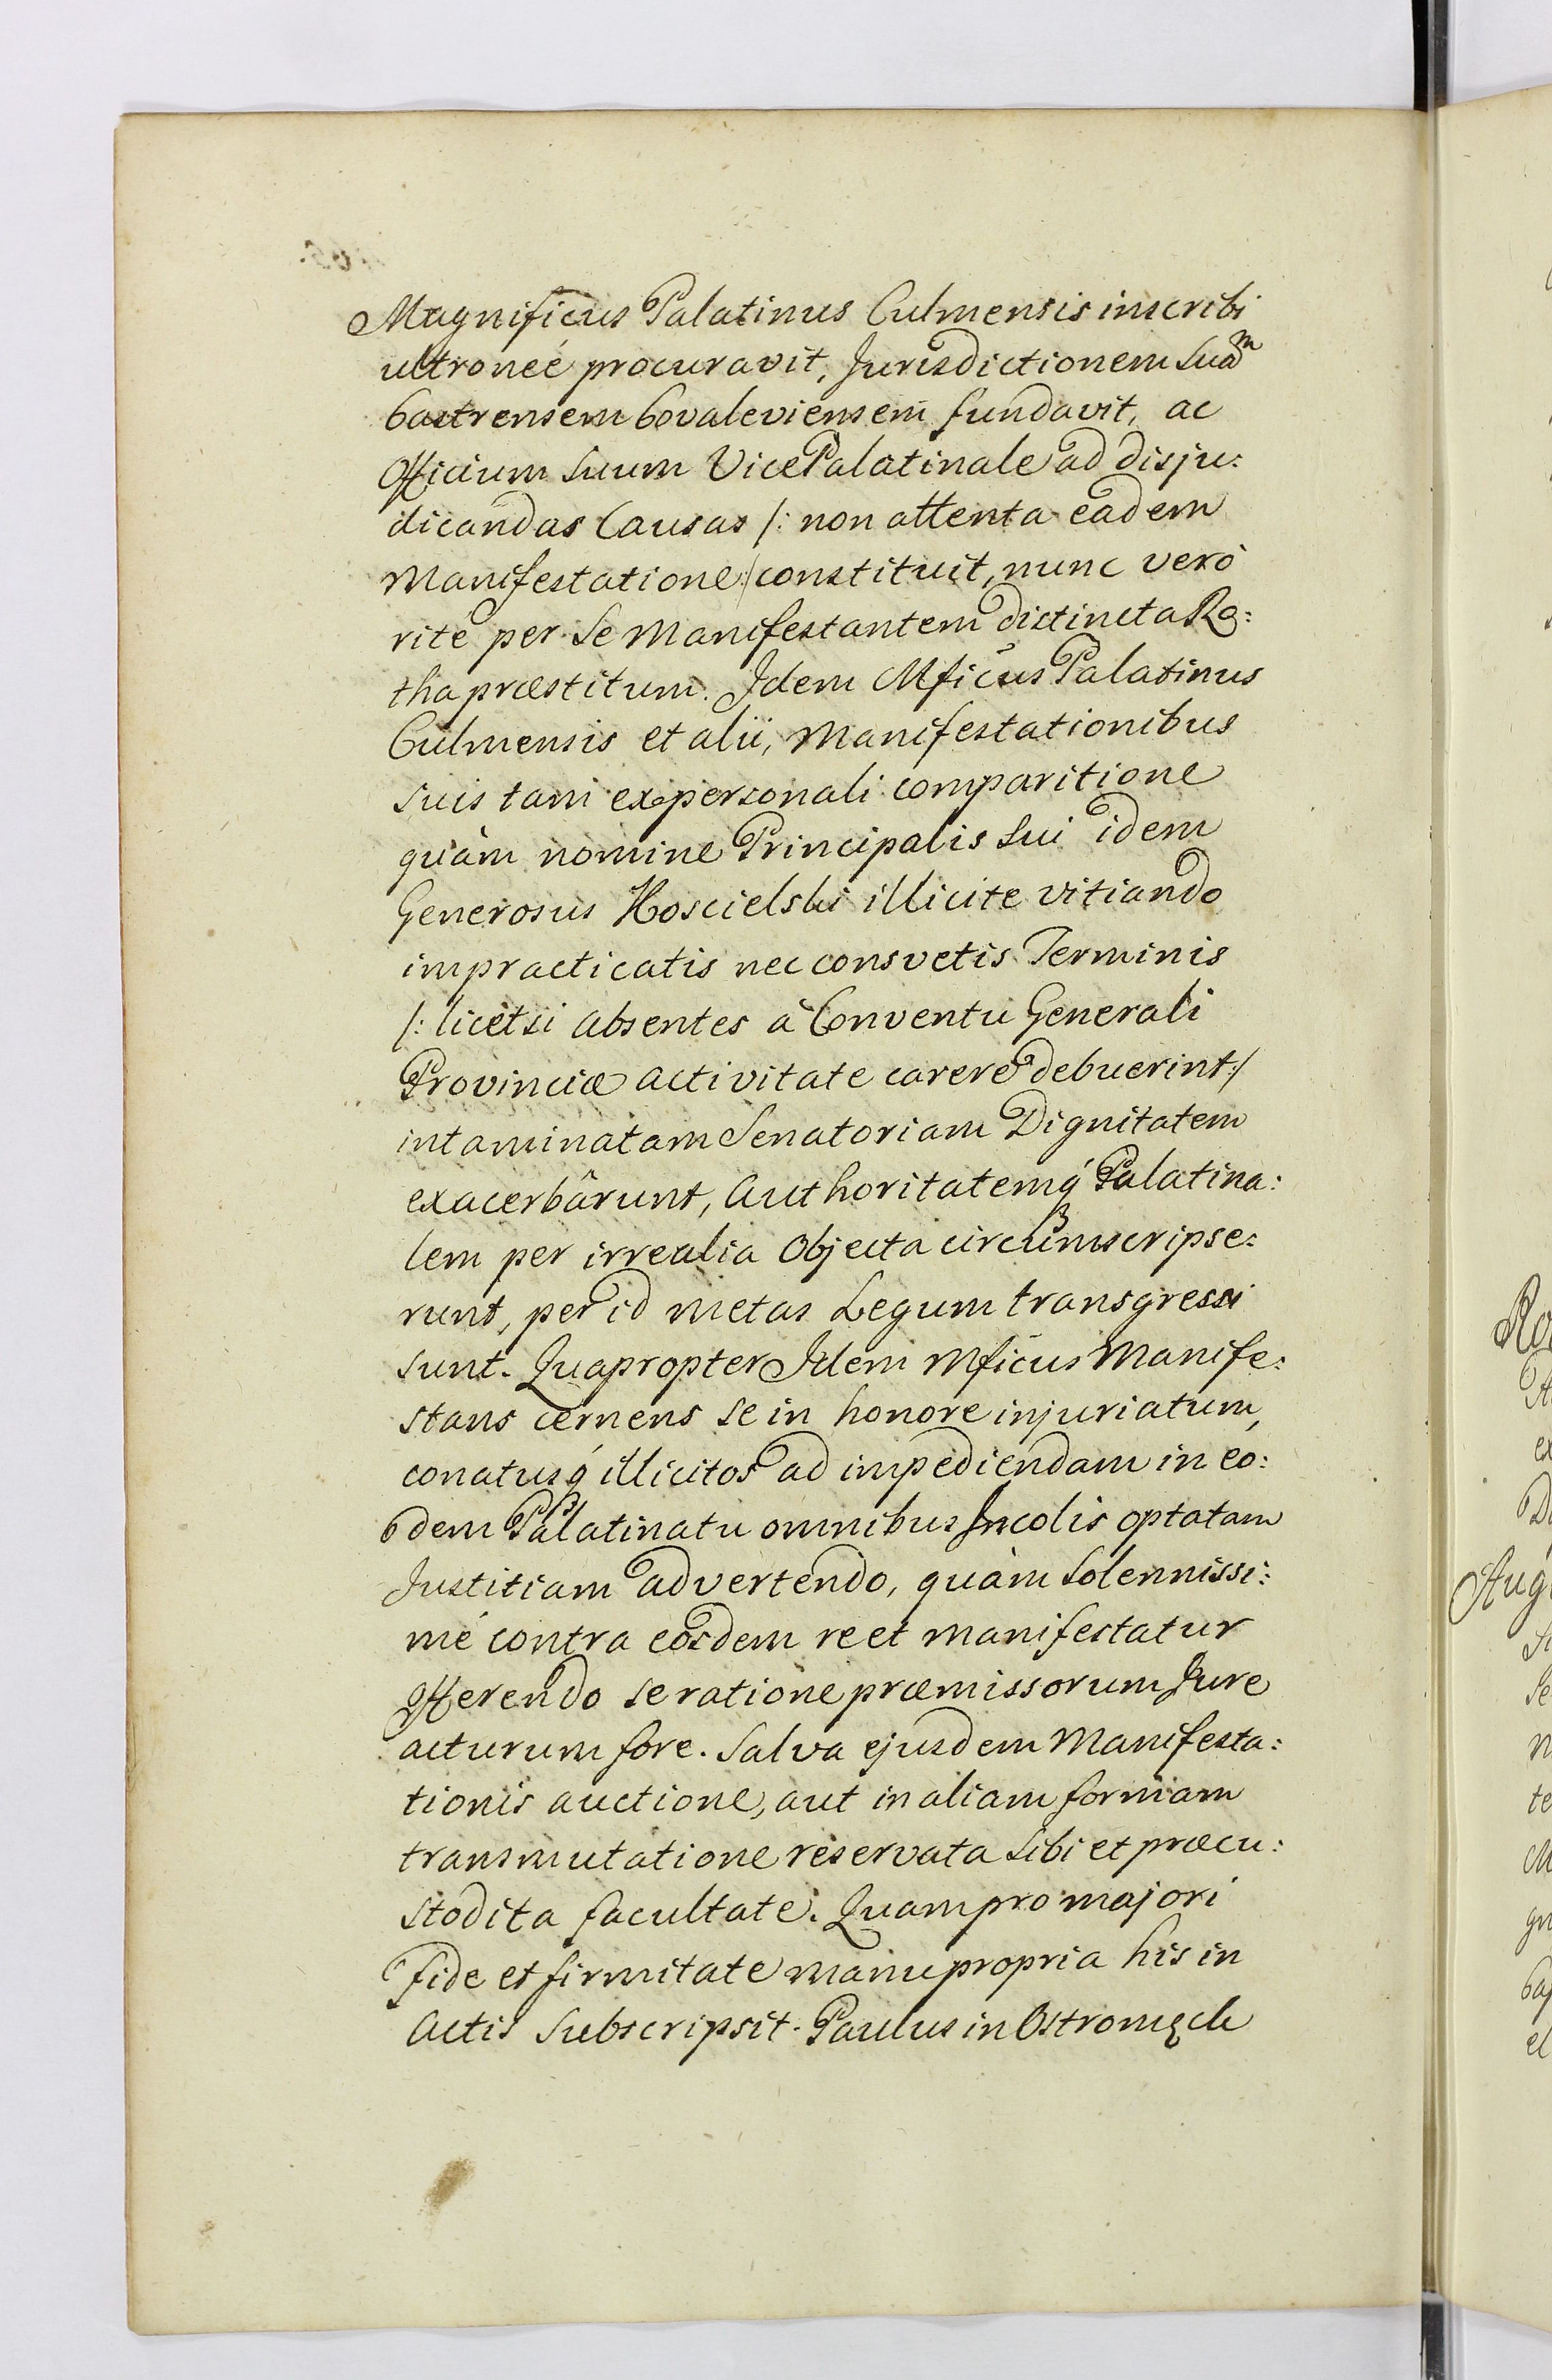 Magnificus Palatinus Culmensis inscribi
ultroneé procuravit, Jurisdictionem Suam
Castrensem Covaleviensem fundavit, ac
Officium Suum VicePalatinale ad disju:
dicandas Causas /: non attenta eadem
Manifestatione :/ constituit, nunc verò
rité per Se Manifestantem distincta Ro:
tha præstitum. Idem Mficus Palatinus
Culmensis et alii, Manifestationibus
suis tam ex personali comparitione
quàm nomine Principalis Sui idem
Generosus Koscielski illicite vitiando
impracticatis nec consvetis Terminis
/: licètsi absentes à Conventu Generali
Provinciæ activitate carere debuerint :/
intaminatam Senatoriam Dignitatem
exacerbârunt, Authoritatemq́ Palatina:
lem per irrealia Objecta circumscripse:
runt, per id metas Legum transgressi
sunt. Quapropter Idem Mficus Manife:
stans cernens se in honore injuriatum,
conatusq́ illicitos ad impediendam in eo:
dem Palatinatu omnibus Incolis optatam
Justitiam advertendo, quàm Solennissi:
mé contra eosdem reet manifestatur
Offerendo se ratione præmissorum Jure
acturum fore. Salva ejusdem Manifesta:
tionis auctione, aut in aliam formam
transmutatione reservata Sibi et præcu:
stodita facultate. Quam pro majori
fide et firmitate manu propria his in
Actis Subscripsit. Paulus in Ostromęck